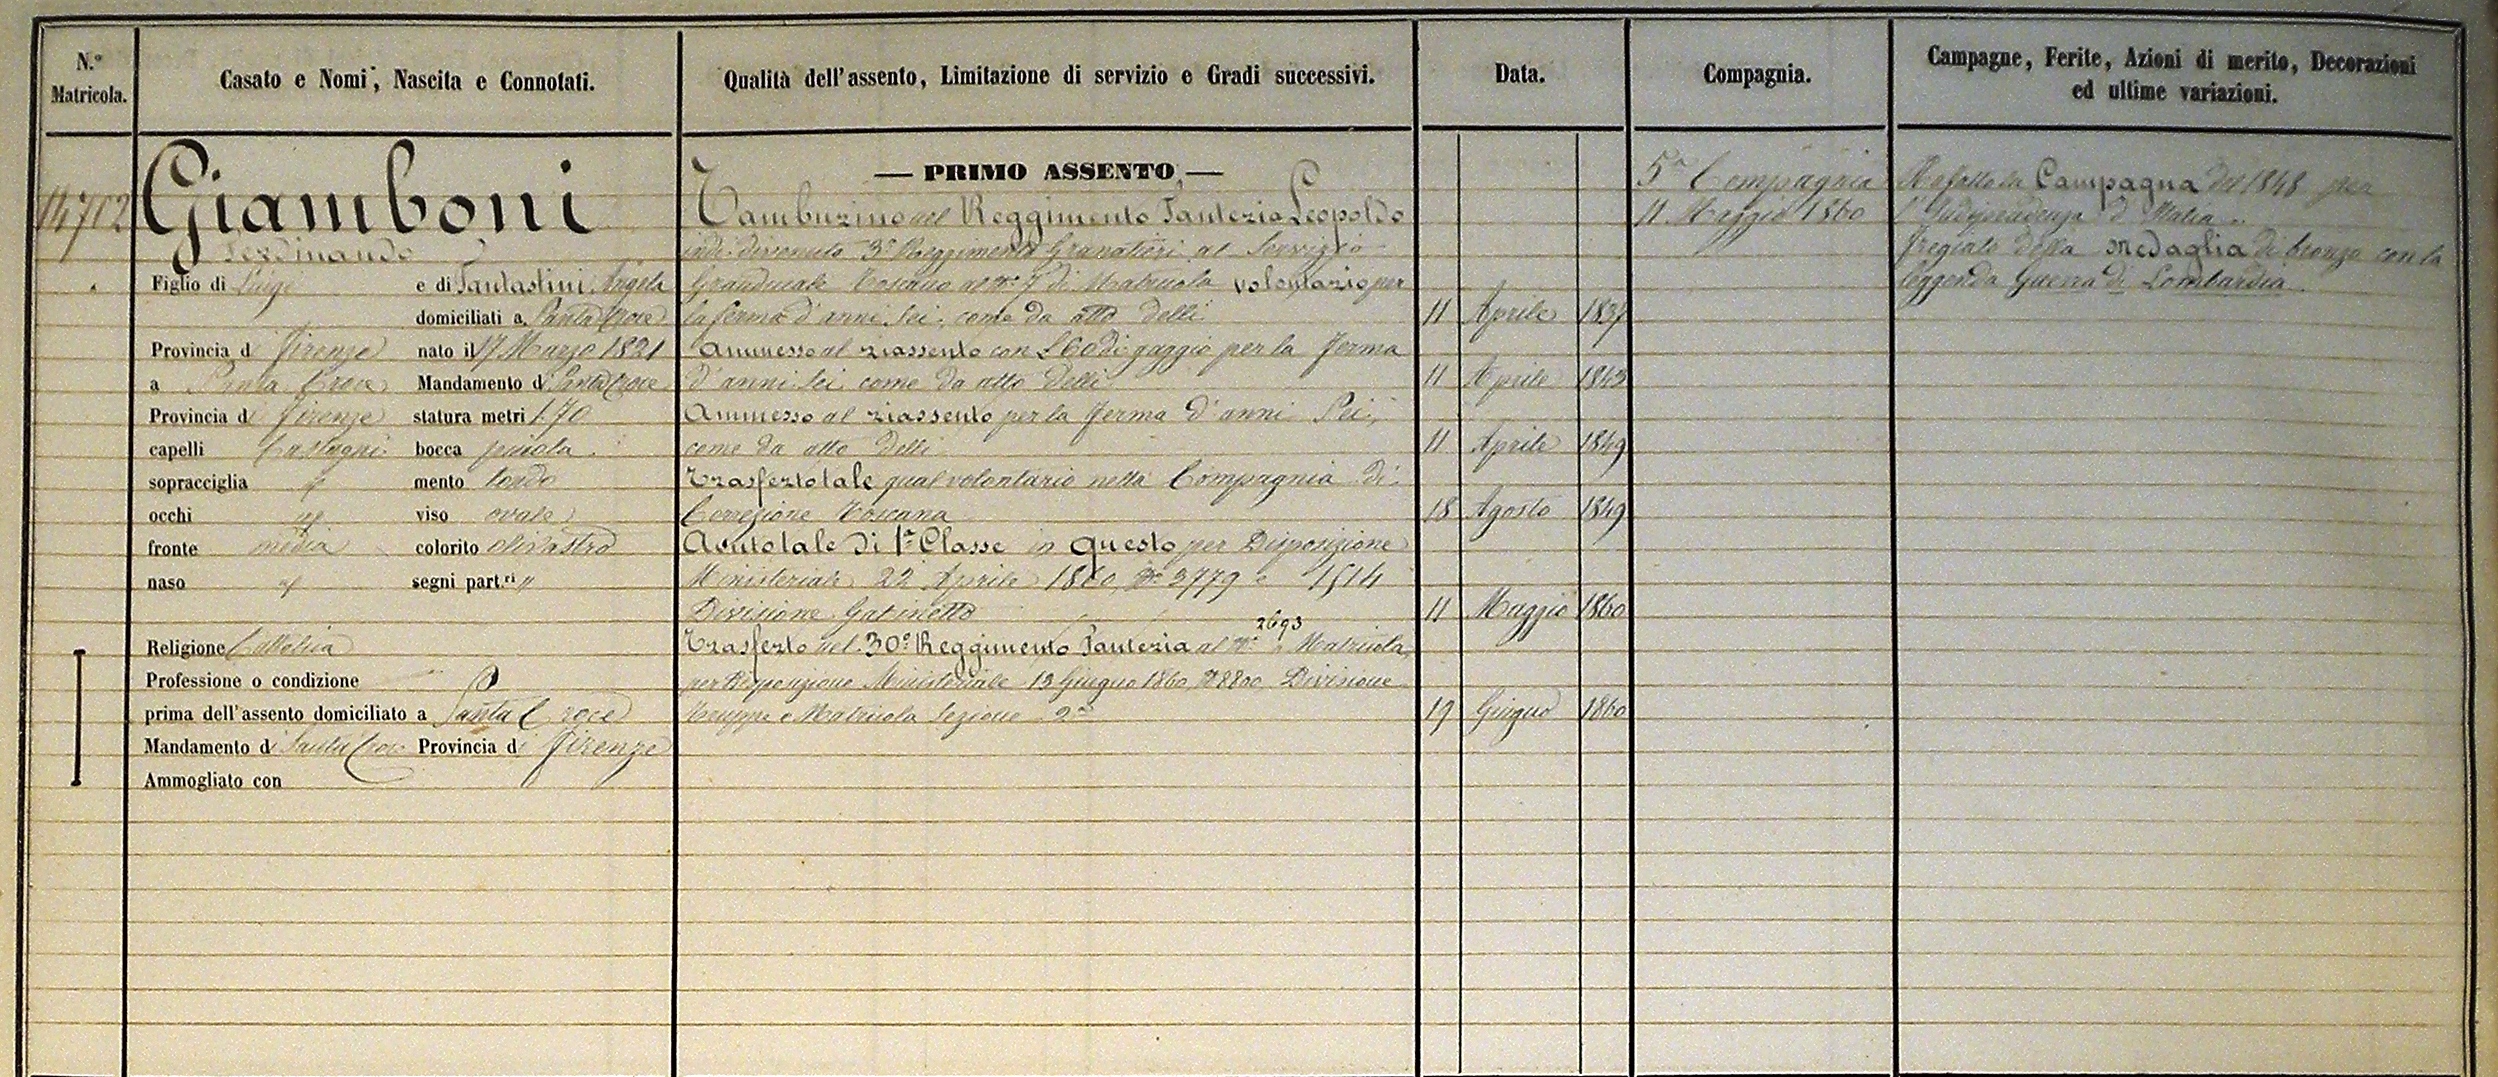 N.° Matricola.
Casato e Nomi, Nascita e Connotati.
Qualità dell'assento, Limitazione di servizio e Gradi successivi.
Data.
Compagnia.
Campagne, Ferite, Azioni di merito, Decorazioni
ed ultime variazioni.
14702
Giamboni
Ferdinando
Figlio di Luigi e di Fantastini Angela
domiciliati a Santa Croce
Provincia di Firenze nato il 17 Marzo 1821
a Santa Croce Mandamento di Santa Croce
Provincia di Firenze statura metri 1.70
capelli Castagni bocca piccola
sopracciglia mento tondo
occhi viso ovale
fronte media colorito olivastro
naso segni part.ri "
Religione Cattolica
Professione o condizione
prima dell'assento domiciliato a Santa Croce
Mandamento di Santa Croce Provincia di Firenze
Ammogliato con
— PRIMO ASSENTO —
Tamburino nel Reggimento Fanteria Leopoldo
indi divenuto 3° Reggimento Granatieri al Servizio
Granducale Toscano al N° di Matricola volontario per
la ferma d'anni Sei, come da atto delli 11 Aprile 1837
Ammesso al riassento con £ 60 di gaggio per la ferma
d'anni Sei come da atto delli 11 Aprile 1843
Ammesso al riassento per la ferma d'anni Sei,
come da atto delli 11 Aprile 1849
Trasferto tale qual volontario nella Compagnia di
Correzione Toscana 18 Agosto 1849
Avuto tale di 1ª Classe in questo per Disposizione
Ministeriale 22 Aprile 1860, N° 3779 e 1514
Divisione Gabinetto 11 Maggio 1860
2693
Trasferto nel 30° Reggimento Fanteria al N° Matricola,
per Disposizione Ministeriale 13 Giugno 1860 N° 8800 Divisione
Truppa e Matricola Sezione 2ª 19 Giugno 1860
5ª Compagnia
11 Maggio 1860
Ha fatto la Campagna del 1848 per
l'Indipendenza d'Italia
Fregiato della Medaglia di bronzo con la
leggenda Guerra di Lombardia